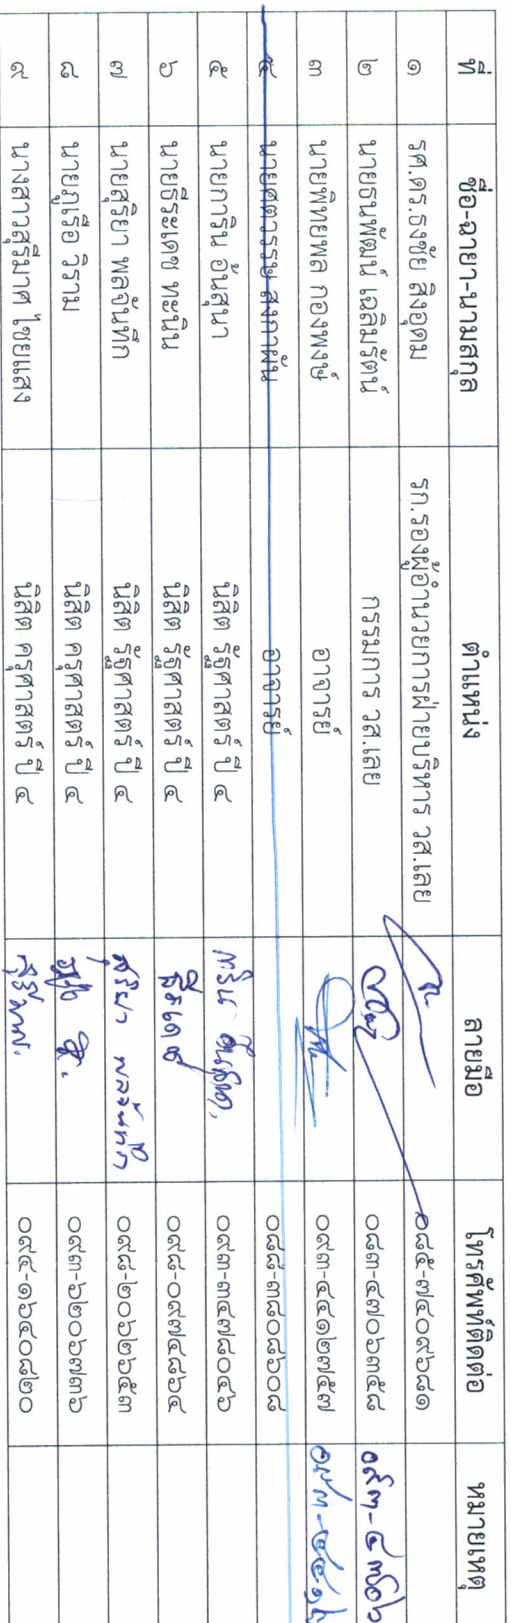 ที่ ชื่อ-ฉายา-นามสกุล ตำแหน่ง ลายมือ โทรศัพท์ติดต่อ หมายเหตุ
๑ รศ.ดร.ธงชัย สิงอุดม รก.รองผู้อำนวยการฝ่ายบริหาร วส.เลย ๐๘๕-๗๔๐๙๖๘๑
๒ นายธนพัฒน์ เฉลิมรัตน์ กรรมการ วส.เลย ๐๘๓-๔๗๐๖๓๕๘
๓ นายพิทยพล กองพงษ์ อาจารย์ ๐๙๓-๔๔๑๒๗๕๗
๔ นายศตวรรษ สงกาผัน อาจารย์ ๐๘๘-๓๘๐๘๖๐๘
๕ นายการิน อันสุนา นิสิต รัฐศาสตร์ ปี ๔ ๐๙๓-๓๔๗๘๐๔๖
๖ นายธีระเดช ทะนิน นิสิต รัฐศาสตร์ ปี ๔ ธีระเดช ๐๙๘-๐๙๗๔๘๖๔
๗ นายสุริยา พลจันทึก นิสิต รัฐศาสตร์ ปี ๔ สุริยา พลจันทึก ๐๙๘-๒๐๖๒๖๕๓
๘ นายภูเรือ วิราม นิสิต ครุศาสตร์ ปี ๔ ๐๙๓-๖๒๐๖๗๓๖
๙ นางสาวสุริมาศ ไชยแสง นิสิต ครุศาสตร์ ปี ๔ สุริมาศ. ๐๙๔-๑๖๔๐๘๒๐